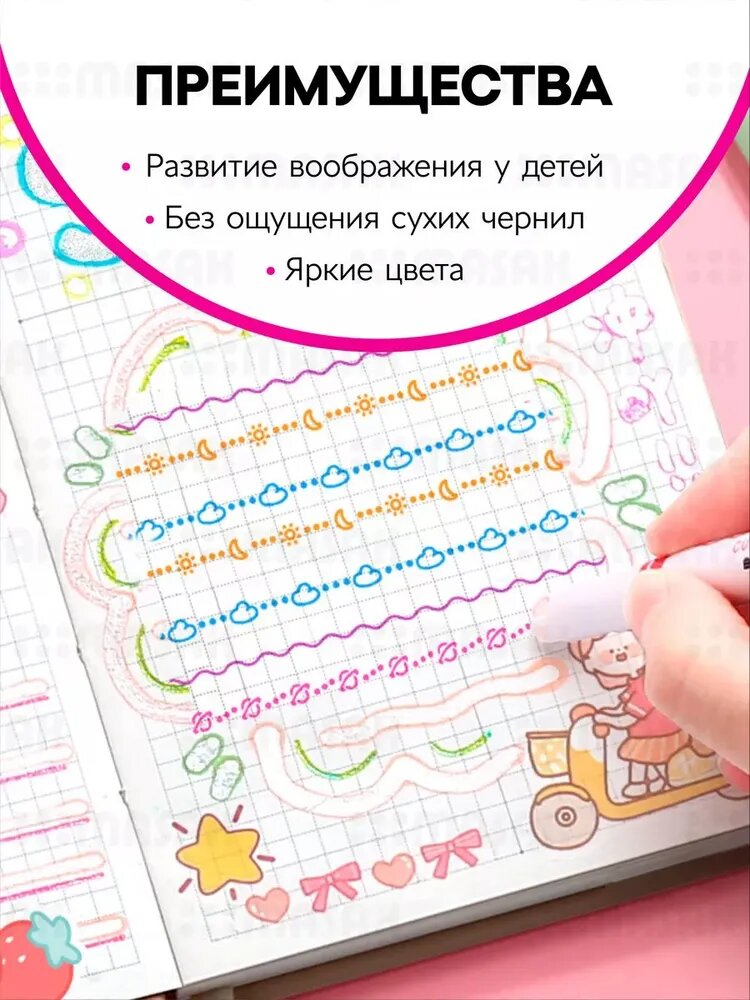 ПРЕИМУЩЕСТВА
• Развитие воображения у детей
• Без ощущения сухих чернил
• Яркие цвета
MASAK